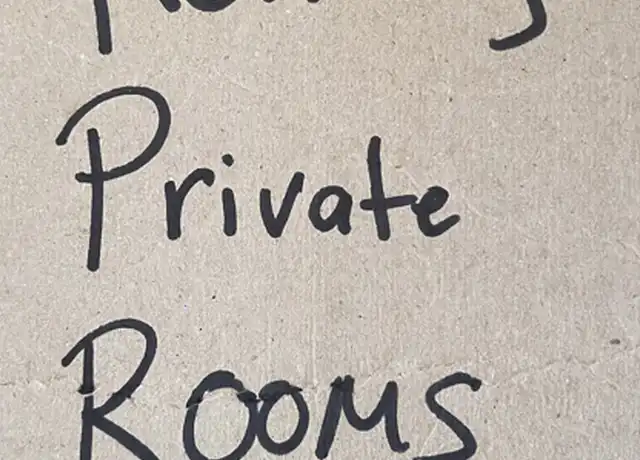 Private
ROOMS